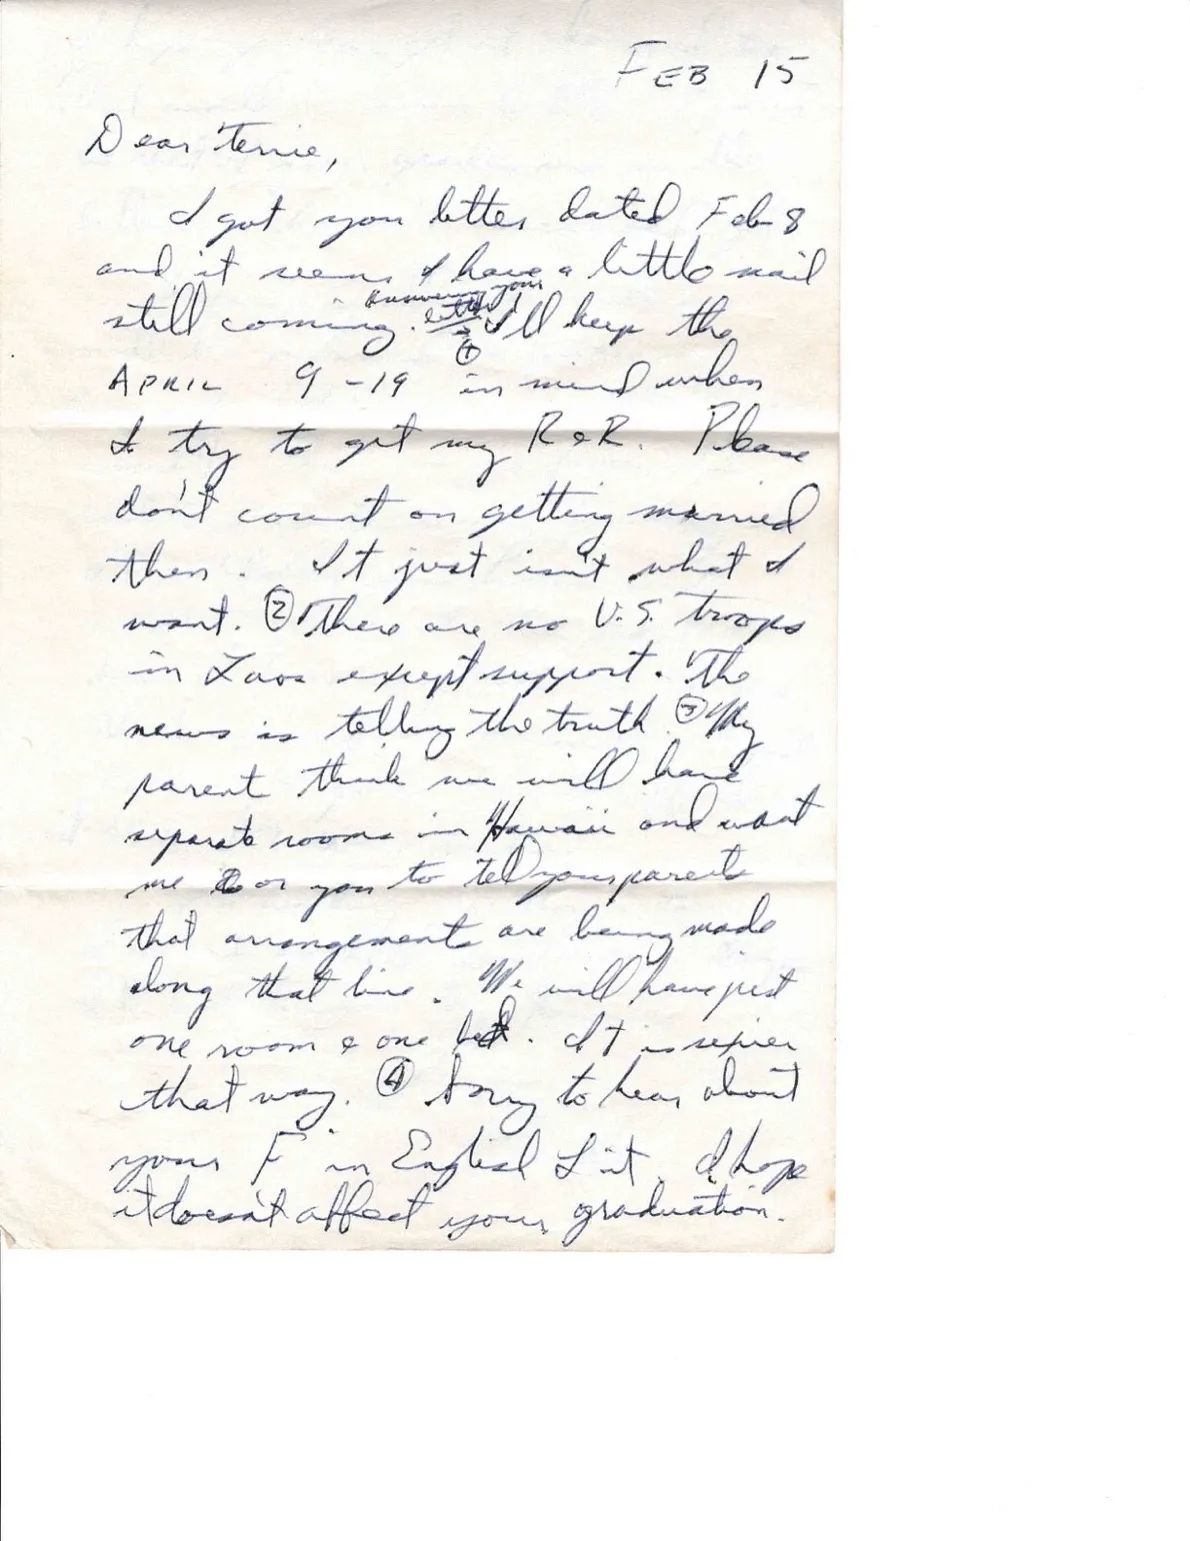 FEB 15
Dear Terrie,
I got your letter dated Feb 8
and it seems I have a little mail
answering your
still coming. letter I'll keep the
①
APRIL 9-19 in mind when
I try to get my R & R. Please
don't count on getting married
then. It just isn't what I
want. ② There are no U.S. troops
in Laos except support. The
news is telling the truth. ③ My
parent think we will have
separate rooms in Hawaii and want
me or you to tell your parents
that arrangements are being made
along that line. We will have just
one room & one bed. It is sexier
that way. ④ Sorry to hear about
your F in English Lit. I hope
it doesn't affect your graduation.